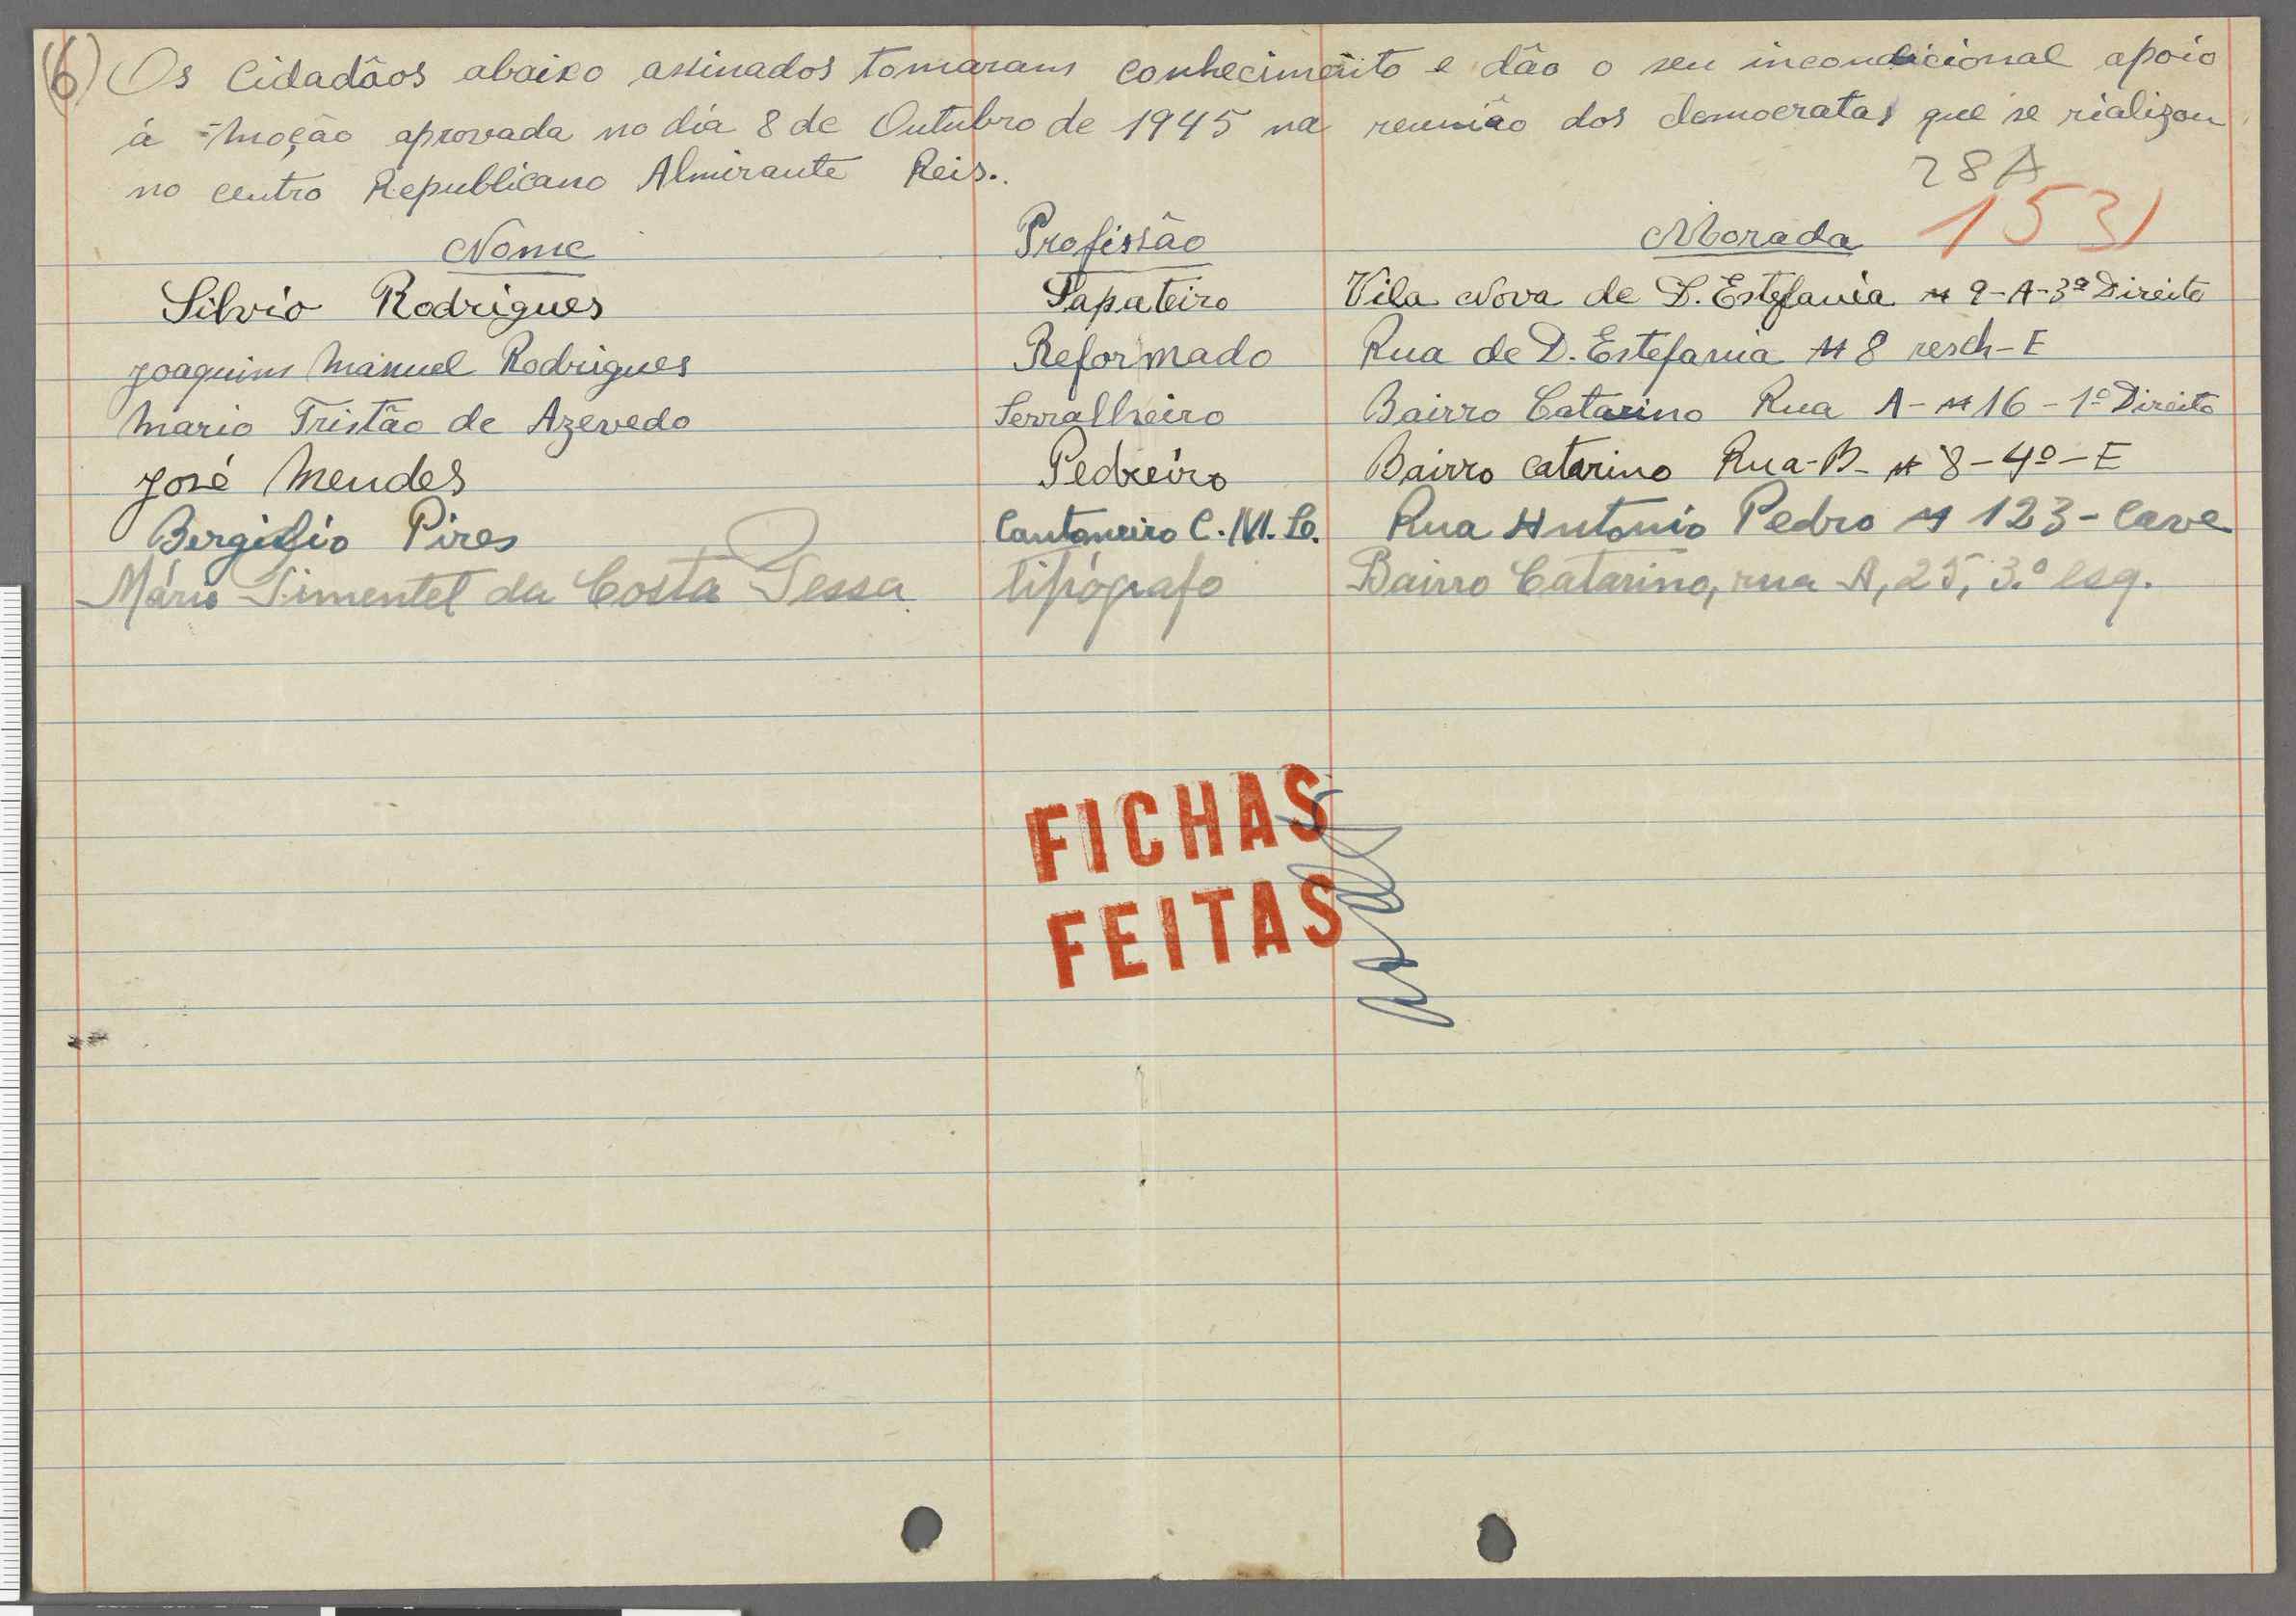 (6) Os Cidadãos abaixo assinados tomaram conhecimento e dão o seu incondicional apoio
á moção aprovada no dia 8 de Outubro de 1945 na reunião dos democratas que se rializou
no centro Republicano Almirante Reis.
28A
1531
Nome Profissão Morada
Silvio Rodrigues Sapateiro Vila Nova de D. Estefania nº 9-A-3º Direito
Joaquim Manuel Rodrigues Reformado Rua de D. Estefania nº 8 resch-E
Mario Tristão de Azevedo Serralheiro Bairro Catarino Rua A- nº 16 - 1º Direito
José Mendes Pedreiro Bairro Catarino Rua-B- nº 8-4º-E
Bergilio Pires Cantoneiro C.M.L. Rua Antonio Pedro nº 123- Cave
Mário Pimentel da Costa Pessa tipógrafo Bairro Catarino, rua A, 25, 3.º esq.
FICHAS
FEITAS